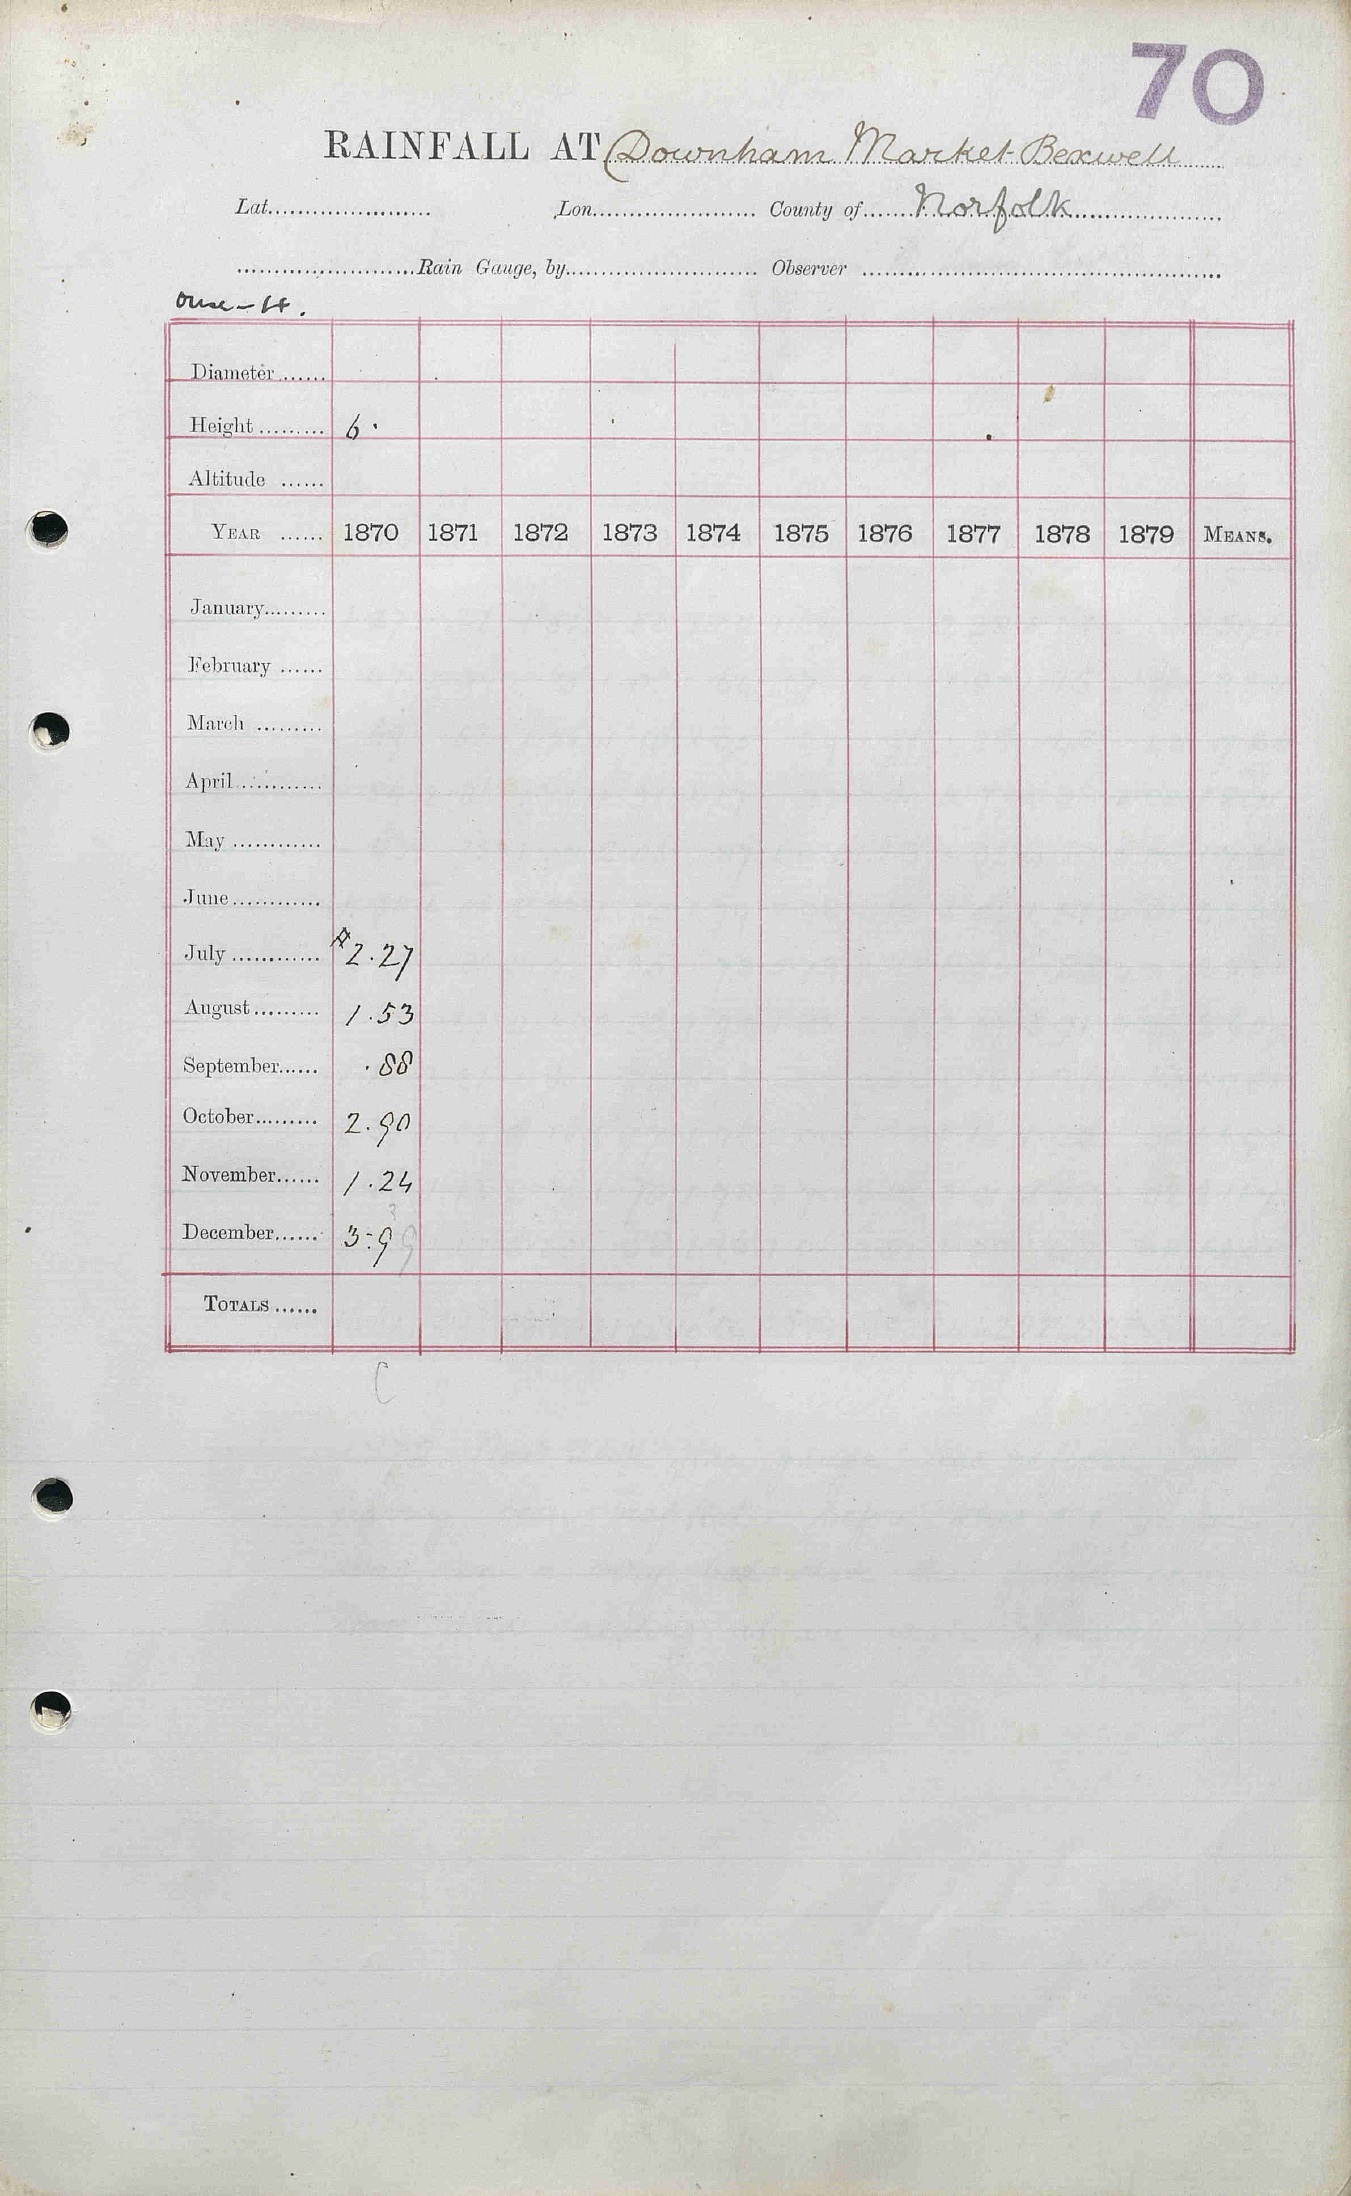 70
RAINFALL AT Downham Market-Bexwell
Lat. Lon. County of Norfolk
Rain Gauge, by Observer
Ouse-H.
Diameter
Height 6.
Altitude
YEAR 1870 1871 1872 1873 1874 1875 1876 1877 1878 1879 MEANS.
January
February
March
April
May
June
July A 2.27
August 1.53
September .88
October 2.90
November 1.24
December 3.9
TOTALS
C